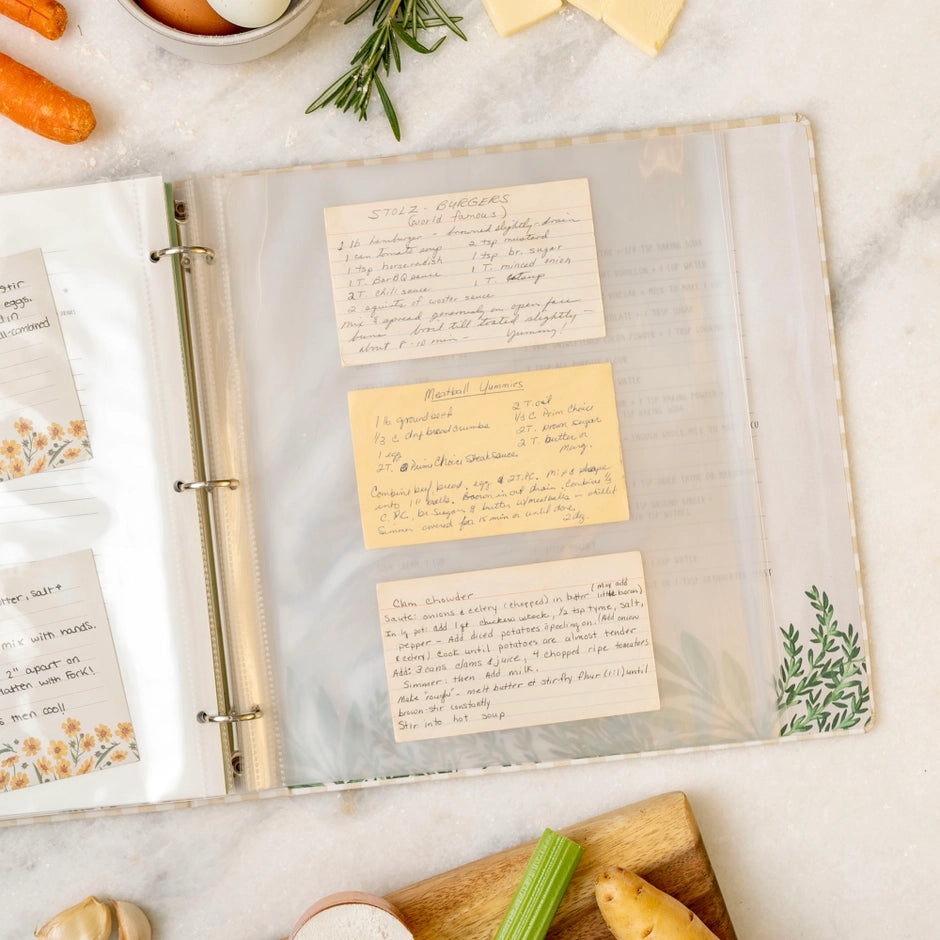 stir
eggs.
d in
ll-combined
utter, salt +
mix with hands.
2" apart on
flatten with fork!
s then cool!
STOLZ - BURGERS
(world famous)
2 lb hamburger - browned slightly - drain
1 can tomato soup
2 tsp mustard
1 tsp horseradish
1 tsp br. sugar
1 T. BarBQ sauce
1 T. minced onion
2 T. chili sauce
1 T. catsup
2 squirts of worster sauce
Mix & spread generously on open face
buns - broil till toasted slightly -
about 8-10 min - Yummy!
Meatball Yummies
1 lb ground beef
2 T. oil
1/3 c dry bread crumbs
1/3 C. Prim Choice
1 egg
2 T. brown sugar
2 T. Prime Choice Steak Sauce
2 T. butter or
Marg.
Combine beef, bread, egg & 2 T. P.C. Mix & shape
into 1" balls. Brown in oil drain. Combine 1/3
C. P.C., br. sugar & butter w/meatballs in skillet
Simmer covered for 15 min or until done.
Clam Chowder
(May add
little bacon)
Saute: onions & celery (chopped) in butter
In lg pot: Add 1 qt. chicken stock, 1/2 tsp tyme, salt,
pepper - Add diced potatoes (Add onion
& celery) Cook until potatoes are almost tender
Add: 3 cans clams & juice, 4 chopped ripe tomatoes
Simmer: then Add milk.
Make "rough" - melt butter & stir-fry flour (1:1) until
brown - stir constantly
Stir into hot soup